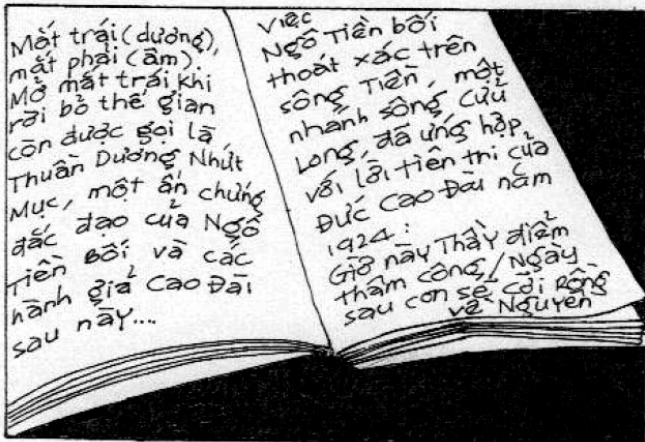 Mắt trái (dương),
mắt phải (âm).
Mở mắt trái khi
rời bỏ thế gian
còn được gọi là
Thuần Dương Nhứt
Mục, một ấn chứng
đắc đạo của Ngô
Tiền Bối và các
hành giả Cao Đài
sau này...
Việc
Ngô Tiền bối
thoát xác trên
sông Tiền, một
nhánh sông Cửu
Long, đã ứng hợp
với lời tiên tri của
Đức Cao Đài năm
1924:
Giờ này Thầy điểm
thâm công / Ngày
sau con sẽ cỡi Rồng
về Nguyên